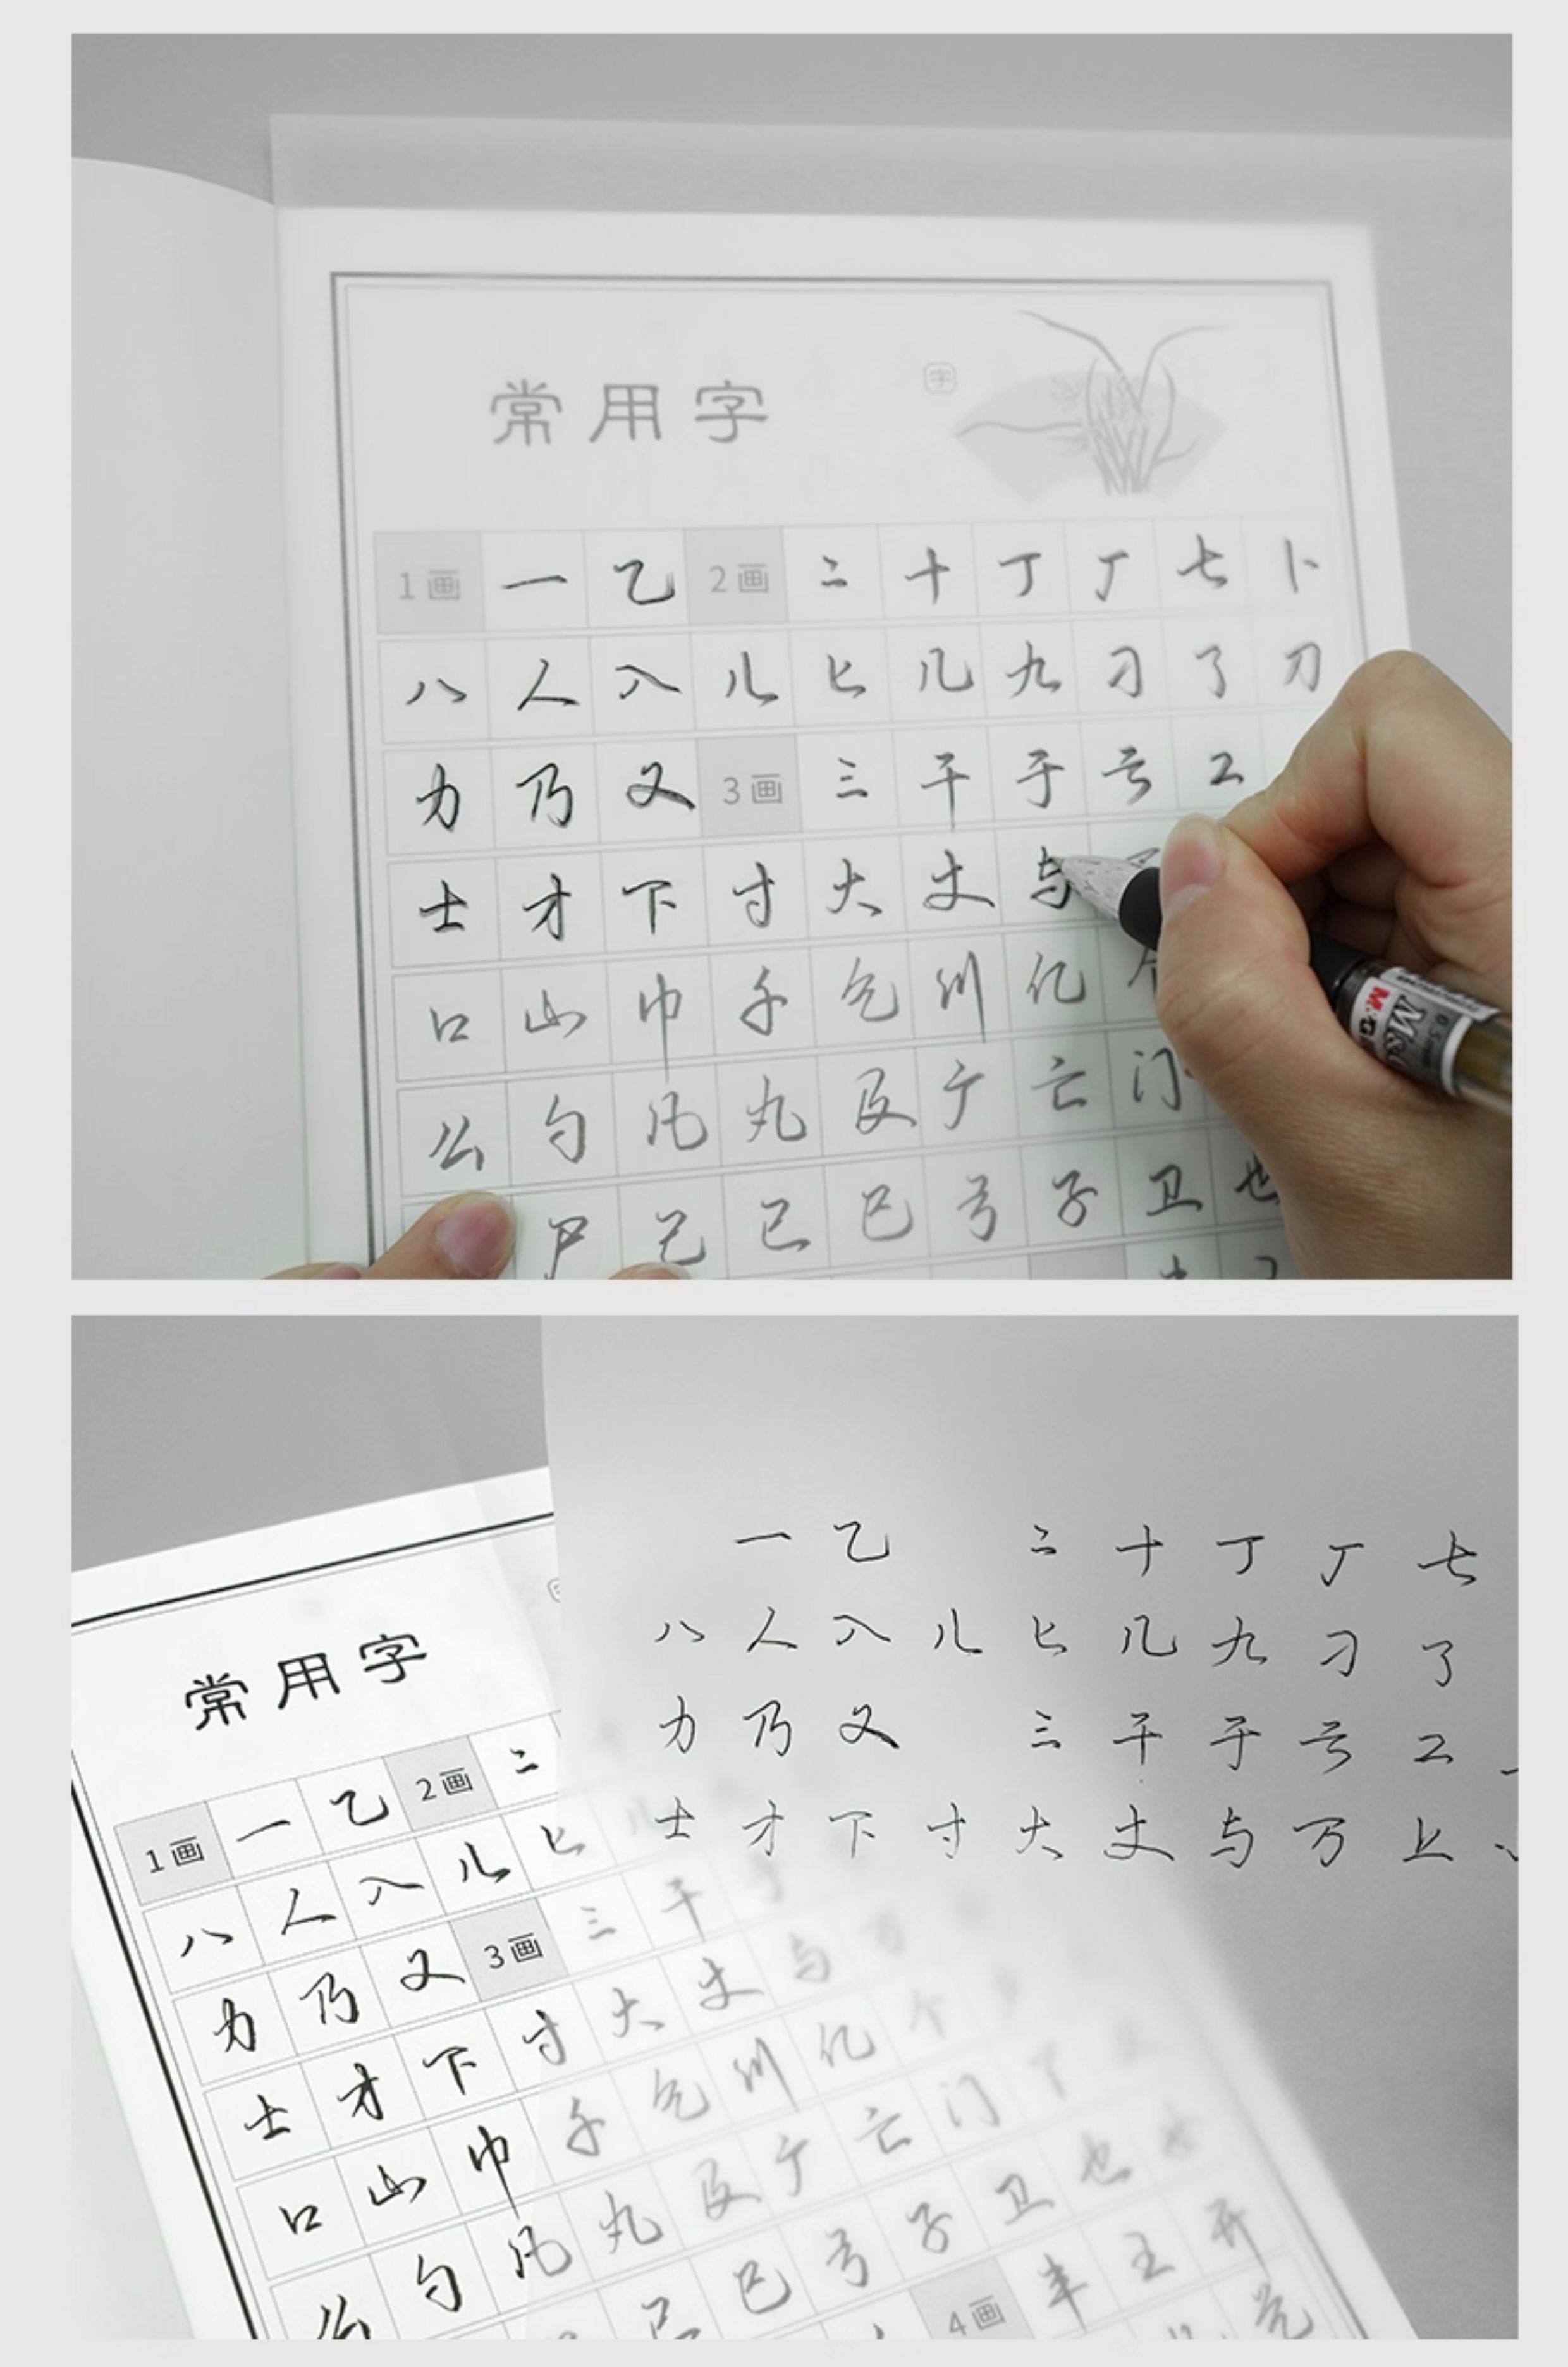 常用字
字
1画 一 乙 2画 二 十 丁 厂 七 卜
八 人 入 儿 匕 几 九 刁 了 刀
力 乃 又 3画 三 干 于 亏 工
士 才 下 寸 大 丈 与
口 山 巾 千 乞 川 亿 个
么 勺 凡 丸 及 广 亡 门
尸 己 已 巳 弓 子 卫 也
0.5mm
M&G
常用字
1画 一 乙 2画 二
八 人 入 儿 匕
力 乃 又 3画 三 干 于
士 才 下 寸 大 丈 与 万
口 山 巾 千 乞 川 亿 个
勺 凡 丸 及 广 亡 门 丫
巳 弓 子 卫 也
4画 丰 王 开
一 乙 二 十 丁 厂 七
八 人 入 儿 匕 几 九 刁 了
力 乃 又 三 干 于 亏 工
士 才 下 寸 大 丈 与 万 上